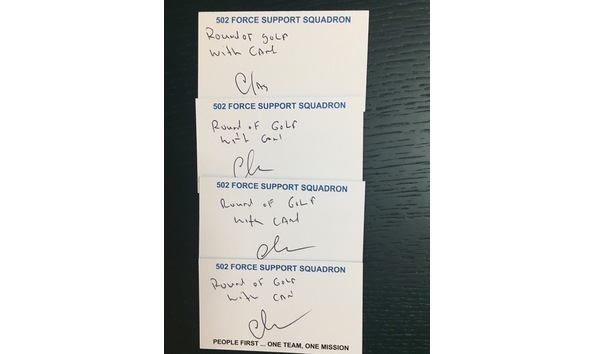 502 FORCE SUPPORT SQUADRON
Round of golf
with Cart
502 FORCE SUPPORT SQUADRON
Round of Golf
with Cart
502 FORCE SUPPORT SQUADRON
Round of Golf
with Cart
502 FORCE SUPPORT SQUADRON
Round of Golf
with Cart
PEOPLE FIRST ... ONE TEAM, ONE MISSION